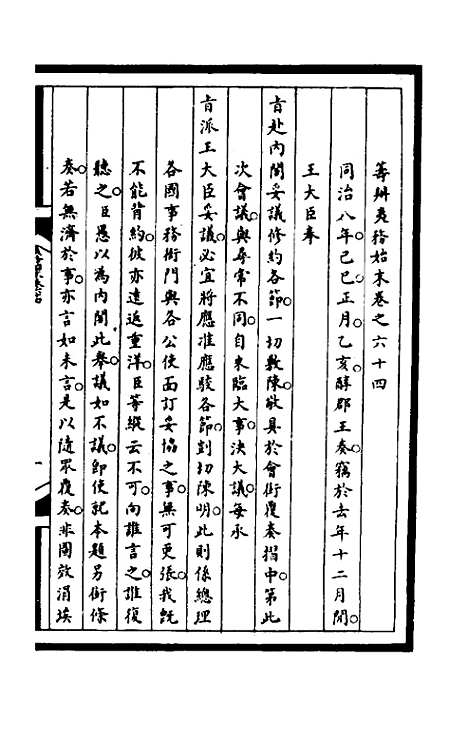 籌辦夷務始末卷之六十四
同治八年己巳正月乙亥醇郡王奏竊於去年十二月間
王大臣奉
旨赴內閣妥議修約各節一切敷陳敬具於會銜覆奏摺中第此
次會議與尋常不同自來臨大事決大議每承
旨派王大臣妥議必宜將應准應駁各節剴切陳明此則係總理
各國事務衙門與各公使面訂妥協之事無可更張我既
不能背約彼亦遠返重洋臣等縱云不可向誰言之誰復
聽之臣愚以為內閣此舉議如不議即使就本題另銜條
奏若無濟於事亦言如未言是以隨眾覆奏非關效涓埃